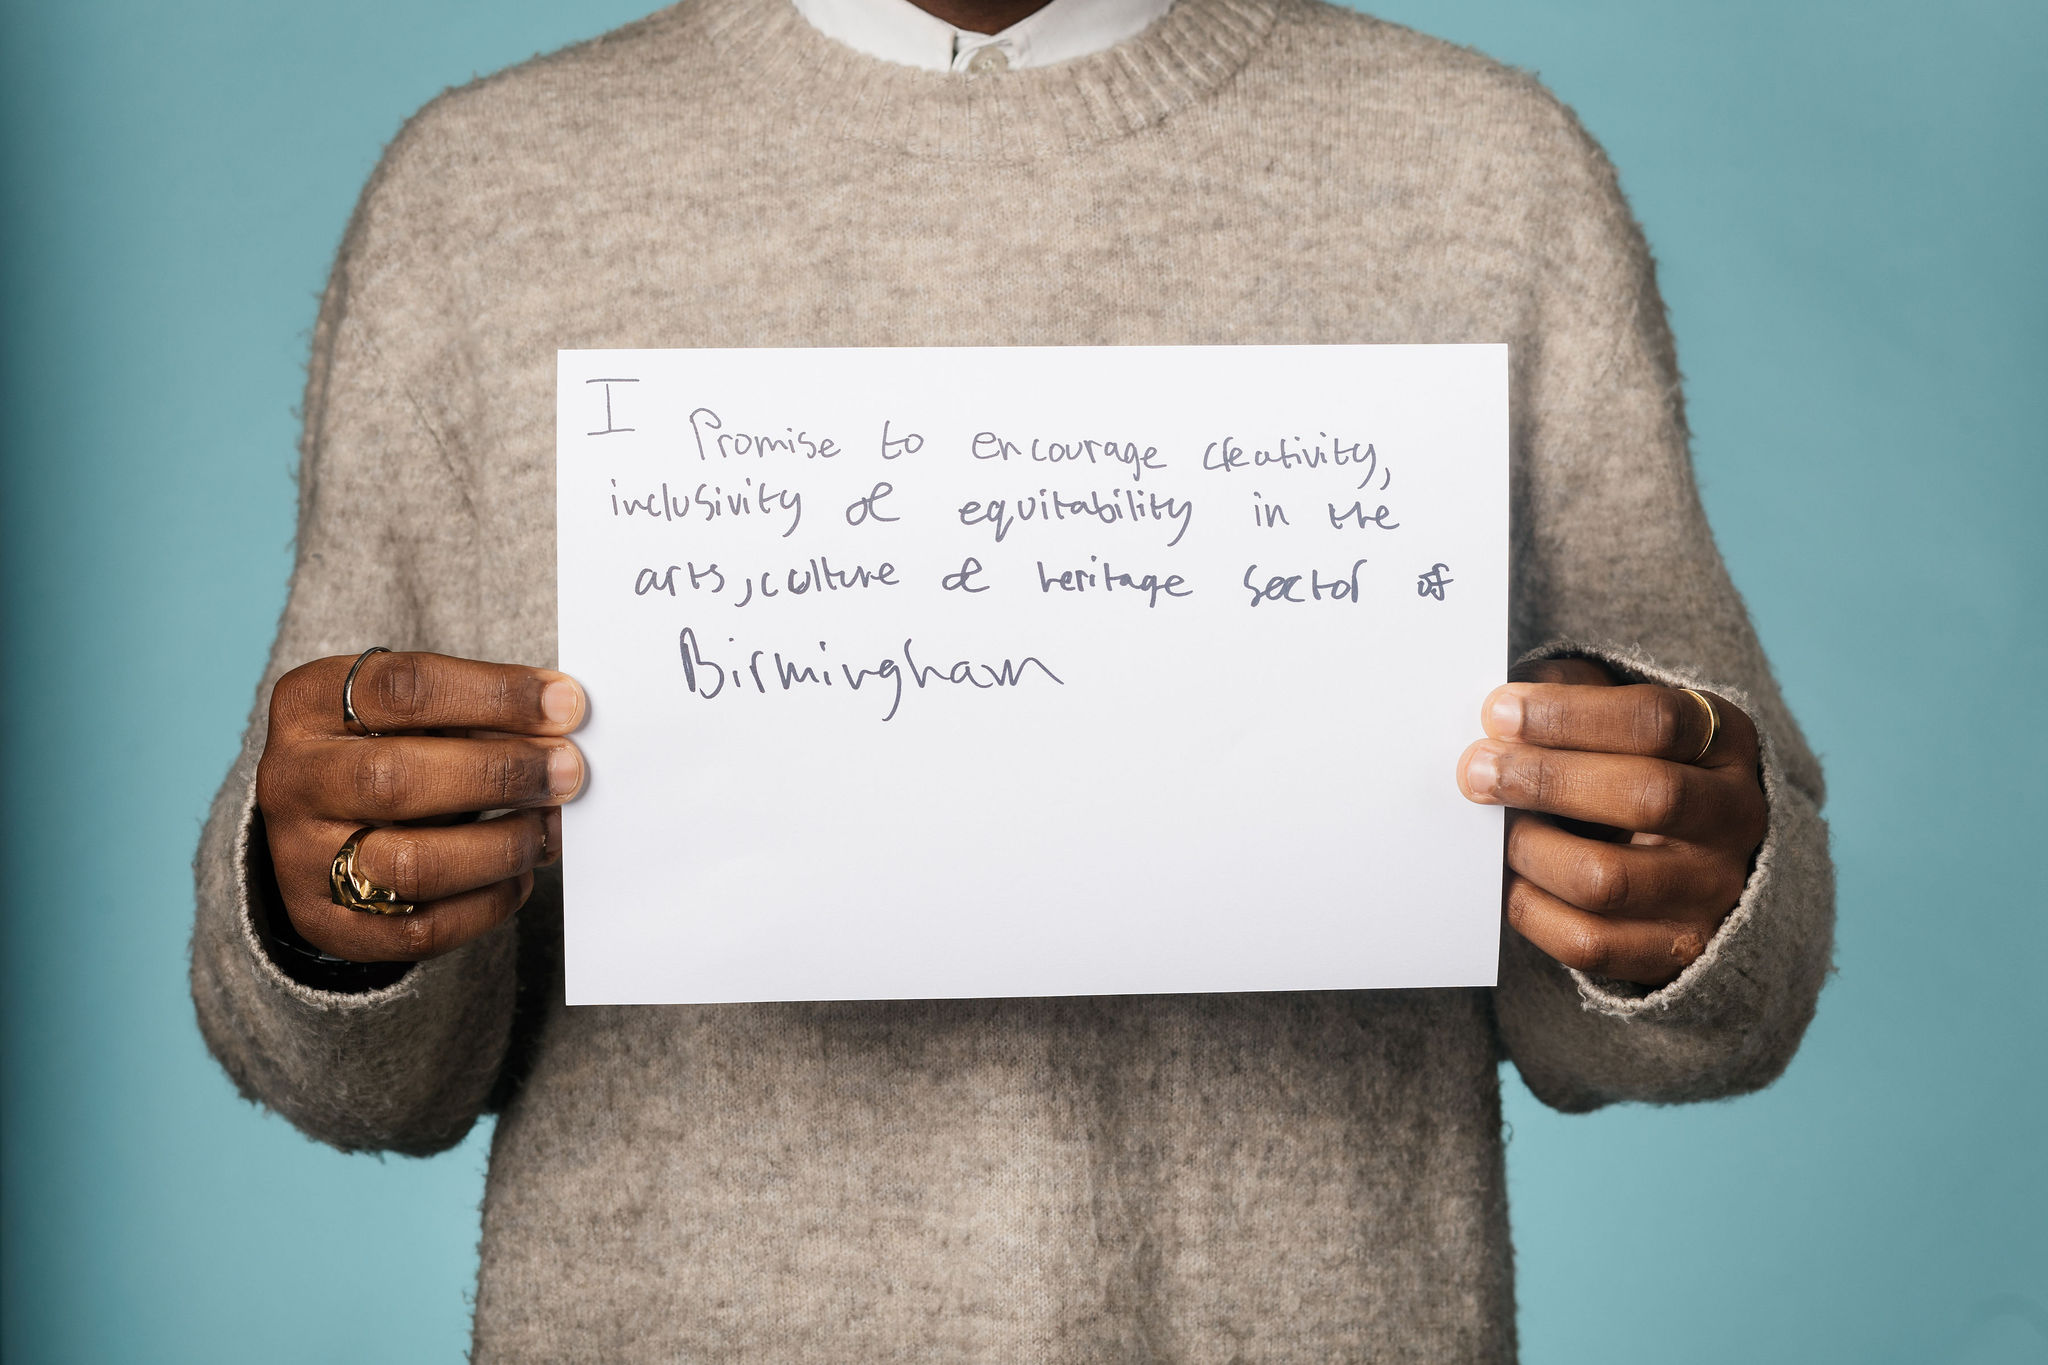 I Promise to encourage creativity,
inclusivity & equitability in the
arts, culture & heritage sector of
Birmingham